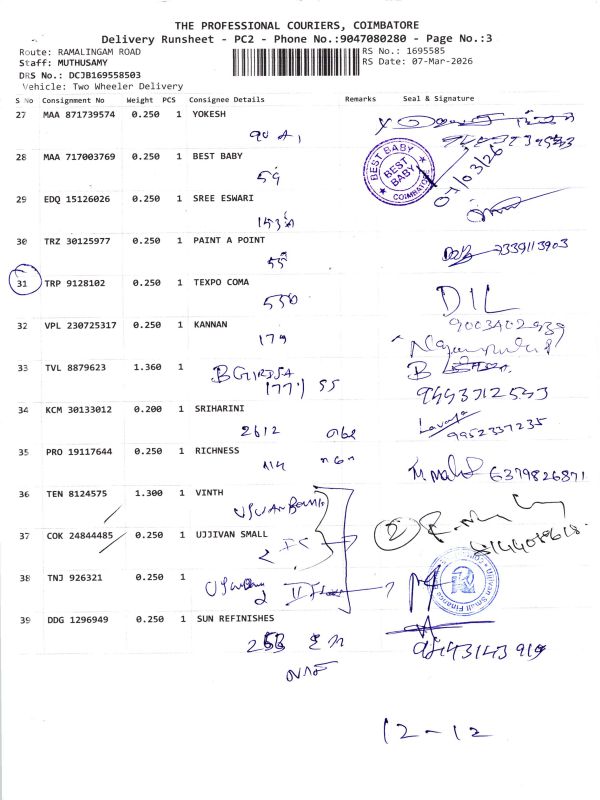 THE PROFESSIONAL COURIERS, COIMBATORE
Delivery Runsheet - PC2 - Phone No.:9047080280 - Page No.:3
Route: RAMALINGAM ROAD RS No.: 1695585
Staff: MUTHUSAMY RS Date: 07-Mar-2026
DRS No.: DCJB169558503
Vehicle: Two Wheeler Delivery
S No Consignment No Weight PCS Consignee Details Remarks Seal & Signature
27 MAA 871739574 0.250 1 YOKESH
28 MAA 717003769 0.250 1 BEST BABY
BEST BABY
BEST BABY
COIMBATORE
07/03/26
59
29 EDQ 15126026 0.250 1 SREE ESWARI
30 TRZ 30125977 0.250 1 PAINT A POINT
55
7339113903
31 TRP 9128102 0.250 1 TEXPO COMA
550
DIL
9003402939
32 VPL 230725317 0.250 1 KANNAN
179
33 TVL 8879623 1.360 1
177) 55
9443712543
34 KCM 30133012 0.200 1 SRIHARINI
2612
Lavanya
9952337235
35 PRO 19117644 0.250 1 RICHNESS
6379826871
36 TEN 8124575 1.300 1 VINTH
37 COK 24844485 0.250 1 UJJIVAN SMALL
2
38 TNJ 926321 0.250 1
Ujjivan Small Finance
39 DDG 1296949 0.250 1 SUN REFINISHES
9843143919
12-12